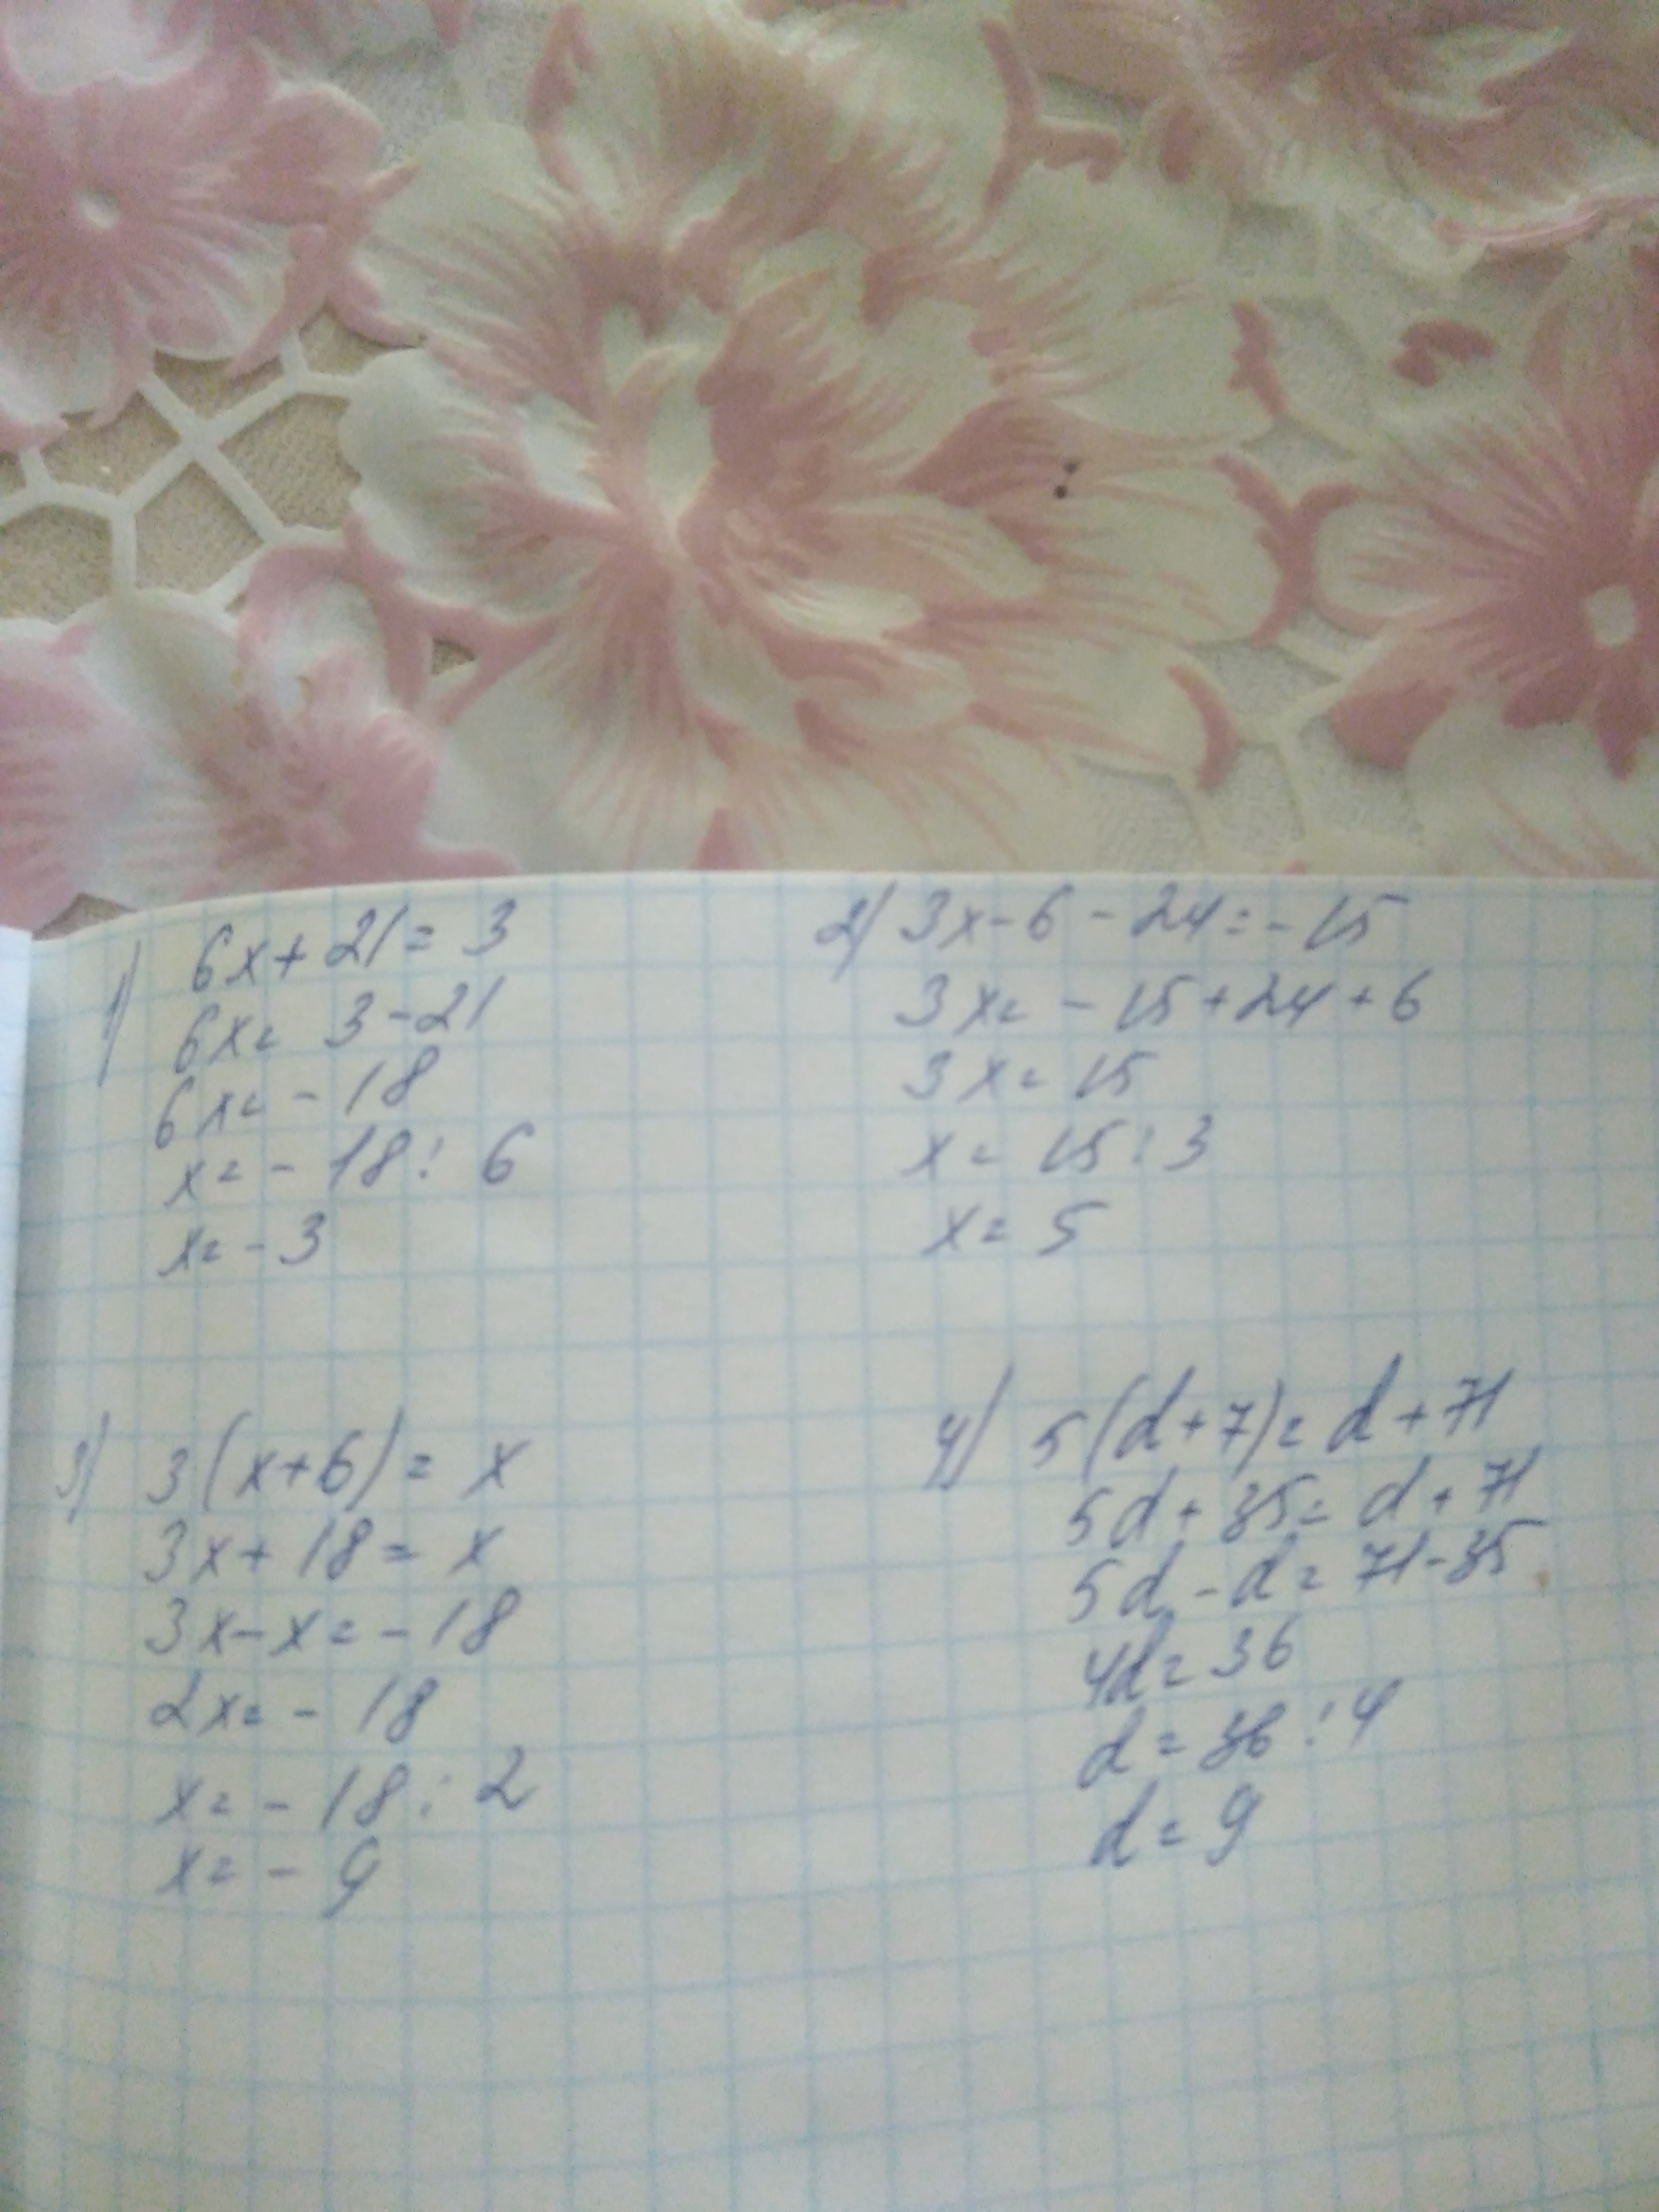 1) 6x + 21 = 3
6x = 3 - 21
6x = - 18
x = - 18 : 6
x = - 3
2) 3x - 6 - 24 = - 15
3x = - 15 + 24 + 6
3x = 15
x = 15 : 3
x = 5
3) 3(x+6) = x
3x + 18 = x
3x - x = - 18
2x = - 18
x = - 18 : 2
x = - 9
4) 5(d+7) = d + 71
5d + 35 = d + 71
5d - d = 71 - 35
4d = 36
d = 36 : 4
d = 9